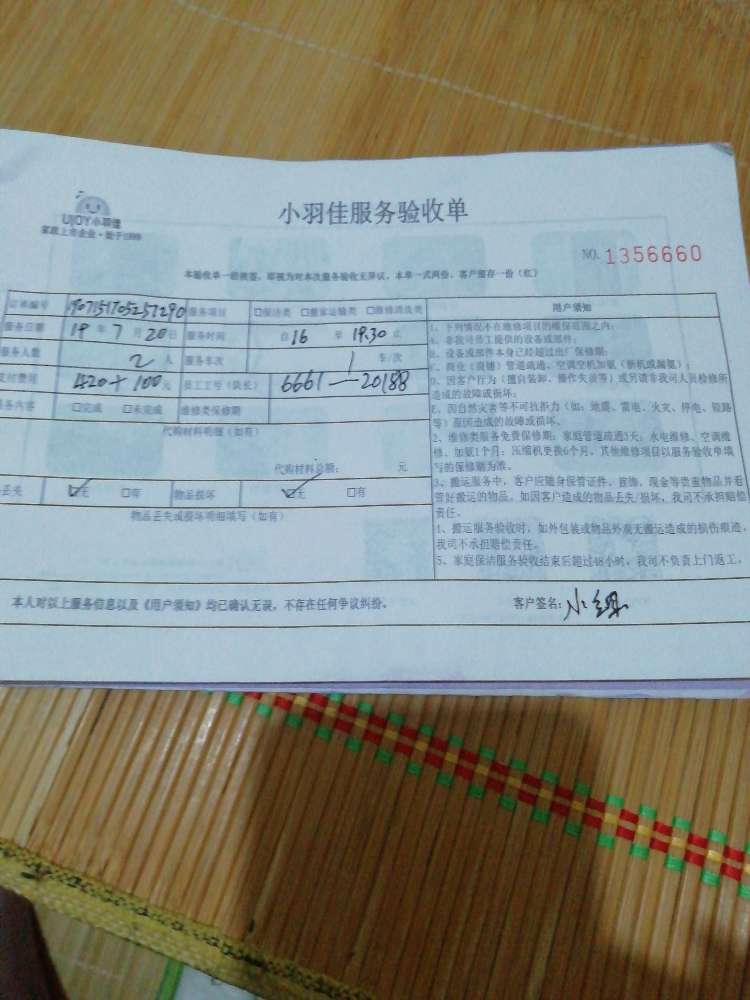 UJOY小羽佳
家政上市企业·始于1999
小羽佳服务验收单
NO. 1356660
本验收单一经接签，即视为对本次服务验收无异议，本单一式两份，客户留存一份（红）
订单编号 服务项目 □保洁类 □搬家运输类 □维修清洗类
服务日期 19年7月20日 服务时间 自16至19.30止
服务人数 2人 服务车次 1车/次
支付费用 420+100元 员工工号（队长） 6661—20188
服务内容 □完成 □未完成 维修类保修期
代购材料明细（如有）
代购材料总额： 元
丢失 ☑无 □有 物品损坏 ☑无 □有
物品丢失或损坏明细填写（如有）
用户须知
1、下列情况不在维修项目的维保范围之内：
A、非我司员工提供的设备或部件；
B、设备或部件本身已经超过出厂保修期；
C、商业（商铺）管道疏通、空调空机加氟（新机或漏氟）；
D、因客户行为（擅自装卸、操作失误等）或另请非我司人员检修所
造成的故障或损坏；
E、因自然灾害等不可抗拒力（如：地震、雷电、火灾、停电、短路
等）原因造成的故障或损坏。
2、维修类服务免费保修期：家庭管道疏通3天；水电维修、空调维
修、加氟1个月；压缩机更换6个月。其他维修项目以服务验收单填
写的保修期为准。
3、搬运服务中，客户应随身保管证件、首饰、现金等贵重物品并看
管好搬运的物品。如因客户造成的物品丢失/损坏，我司不承担赔偿
责任。
4、搬运服务验收时，如外包装或物品外观无搬运造成的损伤痕迹，
我司不承担赔偿责任。
5、家庭保洁服务验收结束后超过48小时，我司不负责上门返工。
本人对以上服务信息以及《用户须知》均已确认无误，不存在任何争议纠纷。 客户签名：